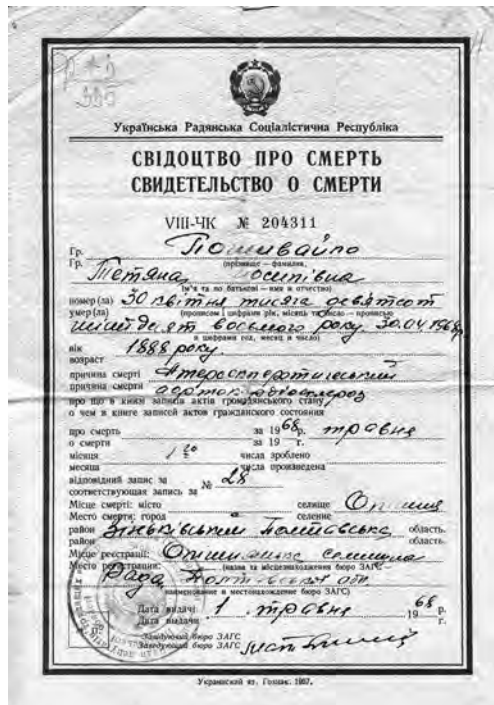 Українська Радянська Соціалістична Республіка
СВІДОЦТВО ПРО СМЕРТЬ
СВИДЕТЕЛЬСТВО О СМЕРТИ
VIII-ЧК № 204311
Гр. Пошивайло
Гр. (прізвище — фамилия,
Тетяна Йосипівна
ім'я та по батькові — имя и отчество)
помер(ла) 30 квітня тисяча девятсот
умер(ла) (прописом і цифрами рік, місяць та число — прописью
шістдесят восьмого року. 30.04.1968р
и цифрами год, месяц и число)
вік 1888 року.
возраст
причина смерті
причина смерти
про що в книзі записів актів громадянського стану
о чем в книге записей актов гражданского состояния
про смерть за 1968 р. травня
о смерти за 19 г.
місяця 1 го числа зроблено
месяца числа произведена
відповідний запис за № 28
соответствующая запись за
Місце смерті: місто селище Опішня
Место смерти: город селение
район Зіньківський Полтавська область.
район область.
Місце реєстрації: Опішнянська селищна
Место регистрации: (назва та місцезнаходження бюро ЗАГС —
Рада Полтавської обл.
наименование и местонахождение бюро ЗАГС)
Дата видачі 1 травня 1968 р.
Дата выдачи г.
Завідуючий бюро ЗАГС
Заведующий бюро ЗАГС
Украинский яз. Гознак. 1967.